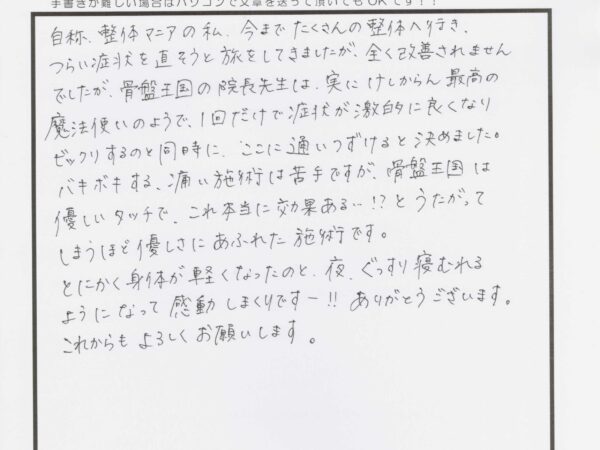 手書きが難しい場合はパソコンで文章を送って頂いてもOKです!!
自称、整体マニアの私、今までたくさんの整体へ行き、
つらい症状を直そうと旅をしてきましたが、全く改善されません
でしたが、骨盤王国の院長先生は、実にけしからん最高の
魔法使いのようで、1回だけで症状が激的に良くなり
ビックリするのと同時に、ここに通いつずけると決めました。
バキボキする、痛い施術は苦手ですが、骨盤王国は
優しいタッチで、これ本当に効果ある…!?とうたがって
しまうほど優しさにあふれた施術です。
とにかく身体が軽くなったのと、夜、ぐっすり寝むれる
ようになって感動しまくりですー!!ありがとうございます。
これからもよろしくお願いします。